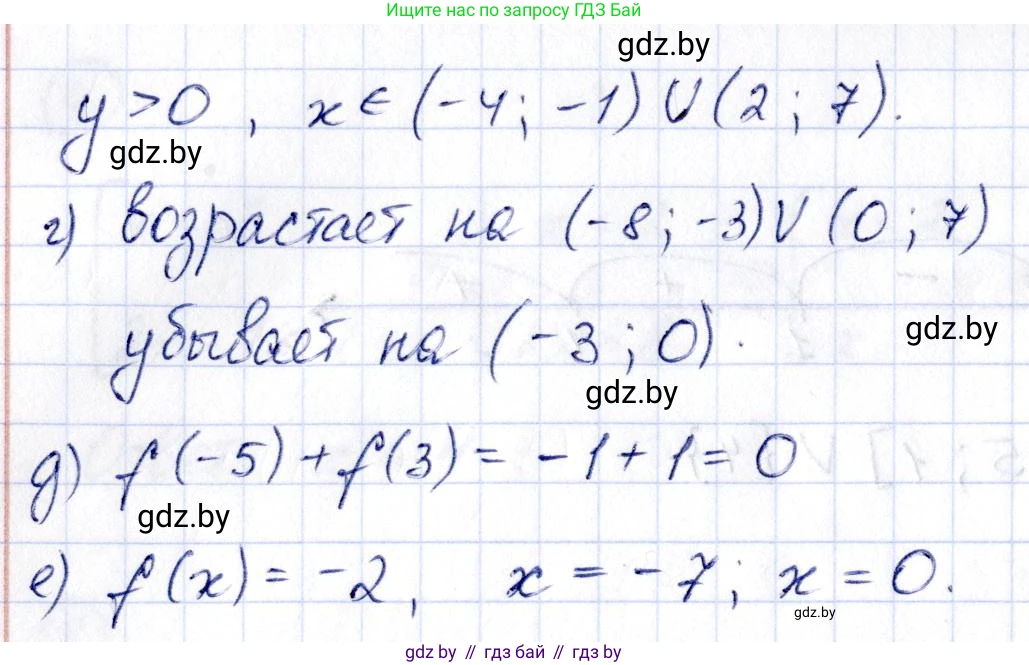 Ищите нас по запросу ГДЗ Бай
gdz.by
y > 0 , x ∈ (-4 ; -1) ∪ (2 ; 7).
gdz.by
г) возрастает на (-8 ; -3) ∪ (0 ; 7)
gdz.by
убывает на (-3 ; 0).
gdz.by
д) f(-5) + f(3) = -1 + 1 = 0
gdz.by
е) f(x) = -2, x = -7 ; x = 0.
gdz.by
gdz.by // гдз бай // gdz.by